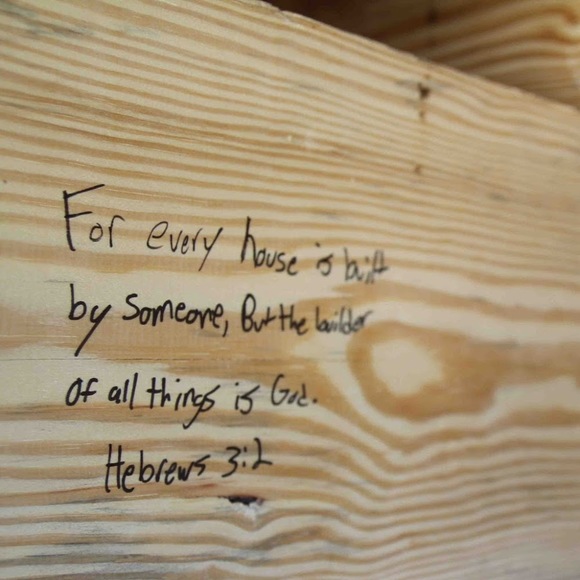 For every house is built
by Someone, But the builder
of all things is God.
Hebrews 3:2